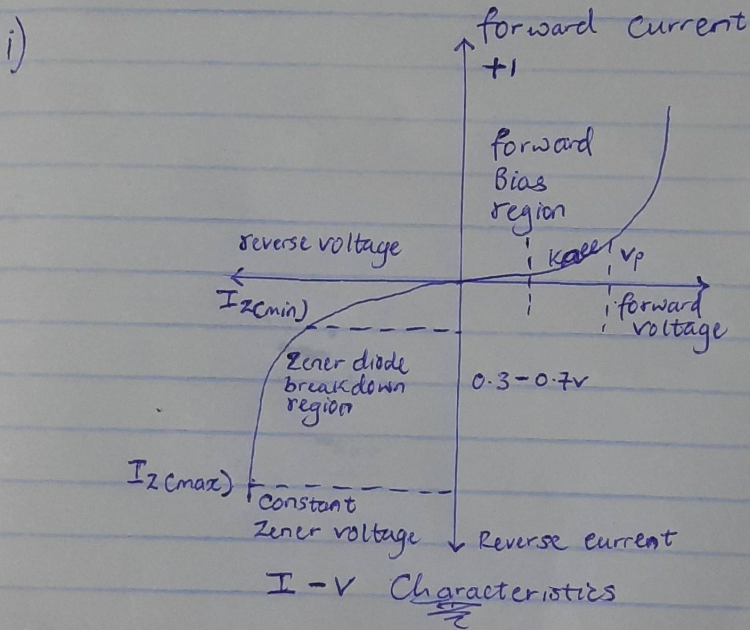 i)
forward current
+1
forward
Bias
region
reverse voltage
Knee
Vp
Iz(min)
forward
voltage
Zener diode
breakdown
region
0.3-0.7v
Iz(max)
constant
Zener voltage
Reverse current
I-V Characteristics